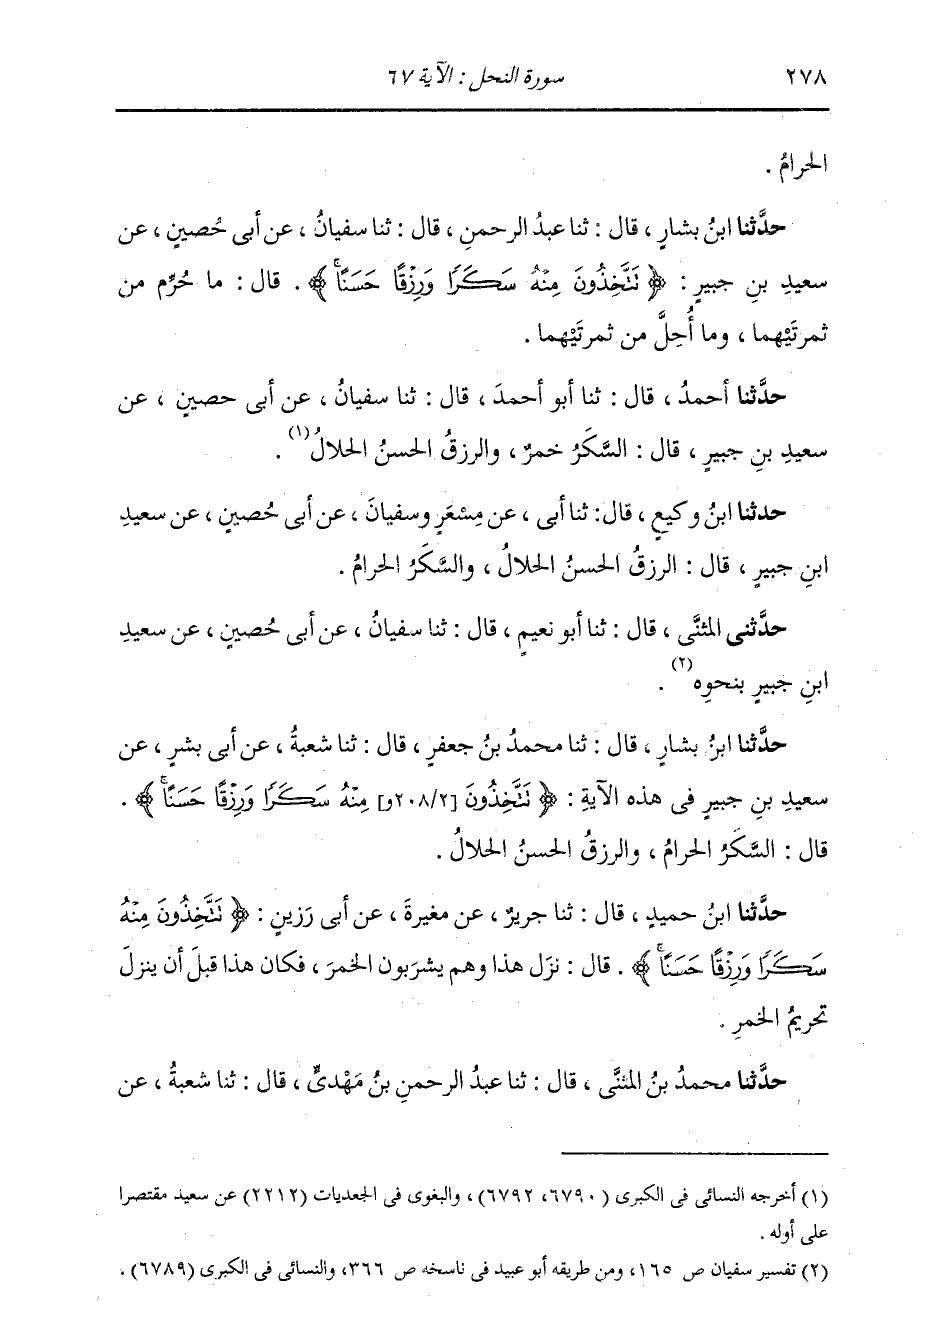 ٢٧٨ سورة النحل : الآية ٦٧
الحرامُ .
حدَّثنا ابنُ بشارٍ ، قال : ثنا عبدُ الرحمنِ ، قال : ثنا سفيانُ ، عن أبى حُصينٍ ، عن
سعيدِ بنِ جبيرٍ : ﴿ نَتَّخِذُونَ مِنْهُ سَكَرًا وَرِزْقًا حَسَنًاۚ ﴾ . قال : ما حُرِّم من
ثمرتَيْهما ، وما أُحِلَّ من ثمرتَيْهما .
حدَّثنا أحمدُ ، قال : ثنا أبو أحمدَ ، قال : ثنا سفيانُ ، عن أبى حصينٍ ، عن
سعيدِ بنِ جبيرٍ ، قال : السَّكَرُ خمرٌ ، والرزقُ الحسنُ الحلالُ(١) .
حدثنا ابنُ وكيعٍ ، قال: ثنا أبى ، عن مِسْعَرٍ وسفيانَ ، عن أبى حُصينٍ ، عن سعيدِ
ابنِ جبيرٍ ، قال : الرزقُ الحسنُ الحلالُ ، والسَّكَرُ الحرامُ .
حدَّثنى المثنَّى ، قال : ثنا أبو نعيمٍ ، قال : ثنا سفيانُ ، عن أبى حُصينٍ ، عن سعيدِ
ابنِ جبيرٍ بنحوِه(٢) .
حدَّثنا ابنُ بشارٍ ، قال : ثنا محمدُ بنُ جعفرٍ ، قال : ثنا شعبةُ ، عن أبى بشرٍ ، عن
سعيدِ بنِ جبيرٍ فى هذه الآيةِ : ﴿ نَتَّخِذُونَ [٢٠٨/٢و] مِنْهُ سَكَرًا وَرِزْقًا حَسَنًاۚ ﴾ .
قال : السَّكَرُ الحرامُ ، والرزقُ الحسنُ الحلالُ .
حدَّثنا ابنُ حميدٍ ، قال : ثنا جريرٌ ، عن مغيرةَ ، عن أبى رَزينٍ : ﴿ نَتَّخِذُونَ مِنْهُ
سَكَرًا وَرِزْقًا حَسَنًاۚ ﴾ . قال : نزَل هذا وهم يشرَبون الخمرَ ، فكان هذا قبلَ أن ينزلَ
تحريمُ الخمرِ .
حدَّثنا محمدُ بنُ المثنَّى ، قال : ثنا عبدُ الرحمنِ بنُ مَهْدىٍّ ، قال : ثنا شعبةُ ، عن
(١) أخرجه النسائى فى الكبرى ( ٦٧٩٠، ٦٧٩٢) ، والبغوى فى الجعديات (٢٢١٢) عن سعيد مقتصرا
على أوله .
(٢) تفسير سفيان ص ١٦٥، ومن طريقه أبو عبيد فى ناسخه ص ٣٦٦، والنسائى فى الكبرى (٦٧٨٩) .